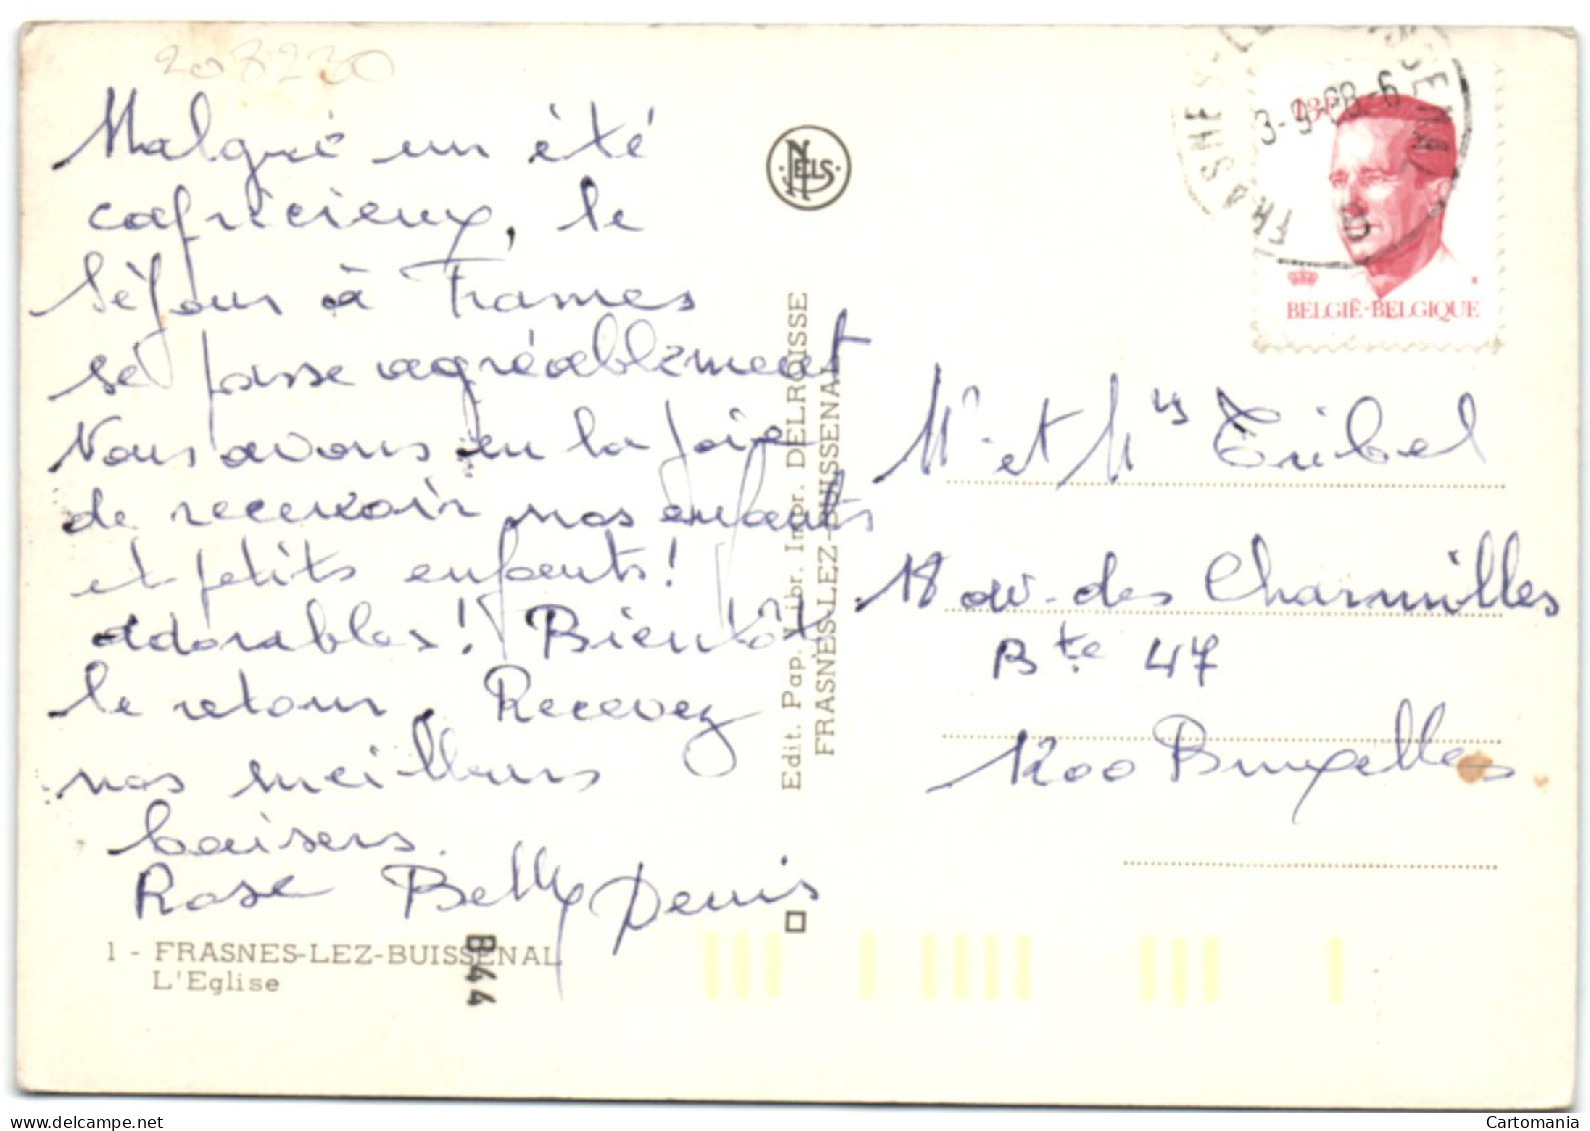 208230
Malgré un été
capricieux, le
séjour à Frasnes
se passe agréablement
Nous avons eu la joie
de recevoir nos enfants
et petits enfants!
adorables! Bientôt
le retour. Recevez
nos meilleurs
baisers.
Rose Betty Denis
1 - FRASNES-LEZ-BUISSENAL
L'Eglise
B44
NELS
Edit. Pap. Libr. Impr. DELROISSE
FRASNES-LEZ-BUISSENAL
13F
BELGIË-BELGIQUE
Mr et Mme Tribel
18 av. des Charmilles
Bte 47
1200 Bruxelles
Cartomania